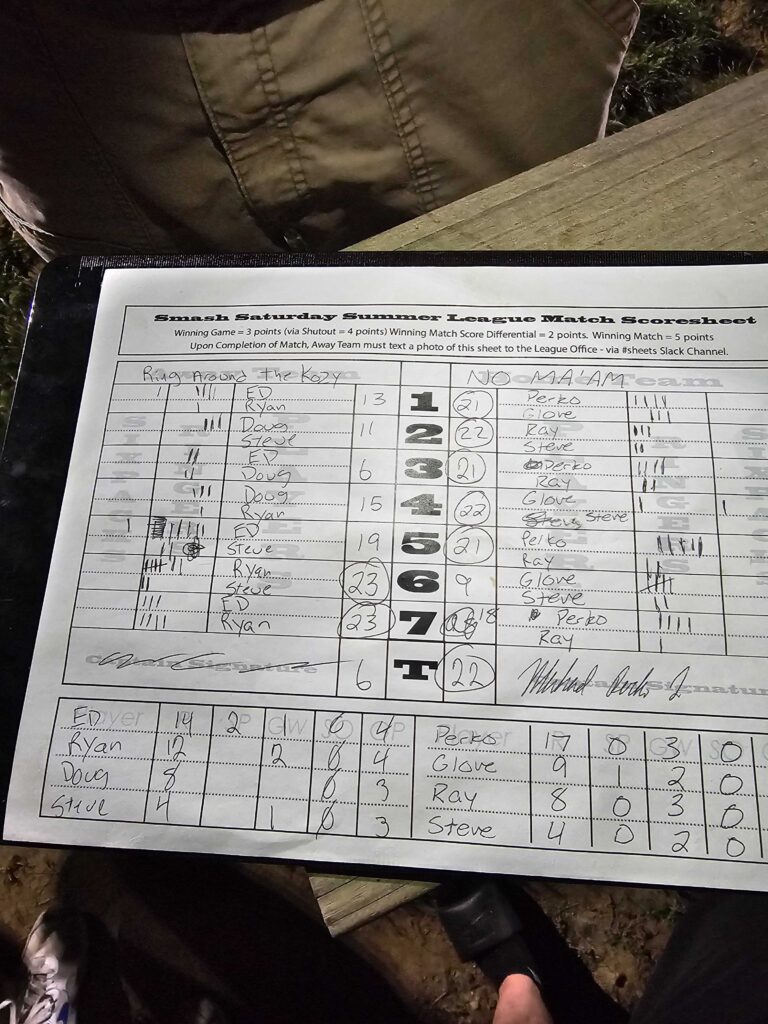 Smash Saturday Summer League Match Scoresheet
Winning Game = 3 points (via Shutout = 4 points) Winning Match Score Differential = 2 points. Winning Match = 5 points
Upon Completion of Match, Away Team must text a photo of this sheet to the League Office - via #sheets Slack Channel.
Ring Around the Kozy NO MA'AM
ED 13 1 21 Perko
Ryan Glove
Doug 11 2 22 Ray
Steve Steve
ED 6 3 21 Perko
Doug Ray
Doug 15 4 22 Glove
Ryan Steve
ED 19 5 21 Perko
Steve Ray
Ryan 23 6 9 Glove
Steve Steve
ED 23 7 18 Perko
Ryan Ray
Signature 6 T 22 Signatur
ED 14 2 0 4 Perko 17 0 3 0
Ryan 12 2 0 4 Glove 9 1 2 0
Doug 8 0 3 Ray 8 0 3 0
Steve 4 1 0 3 Steve 4 0 2 0